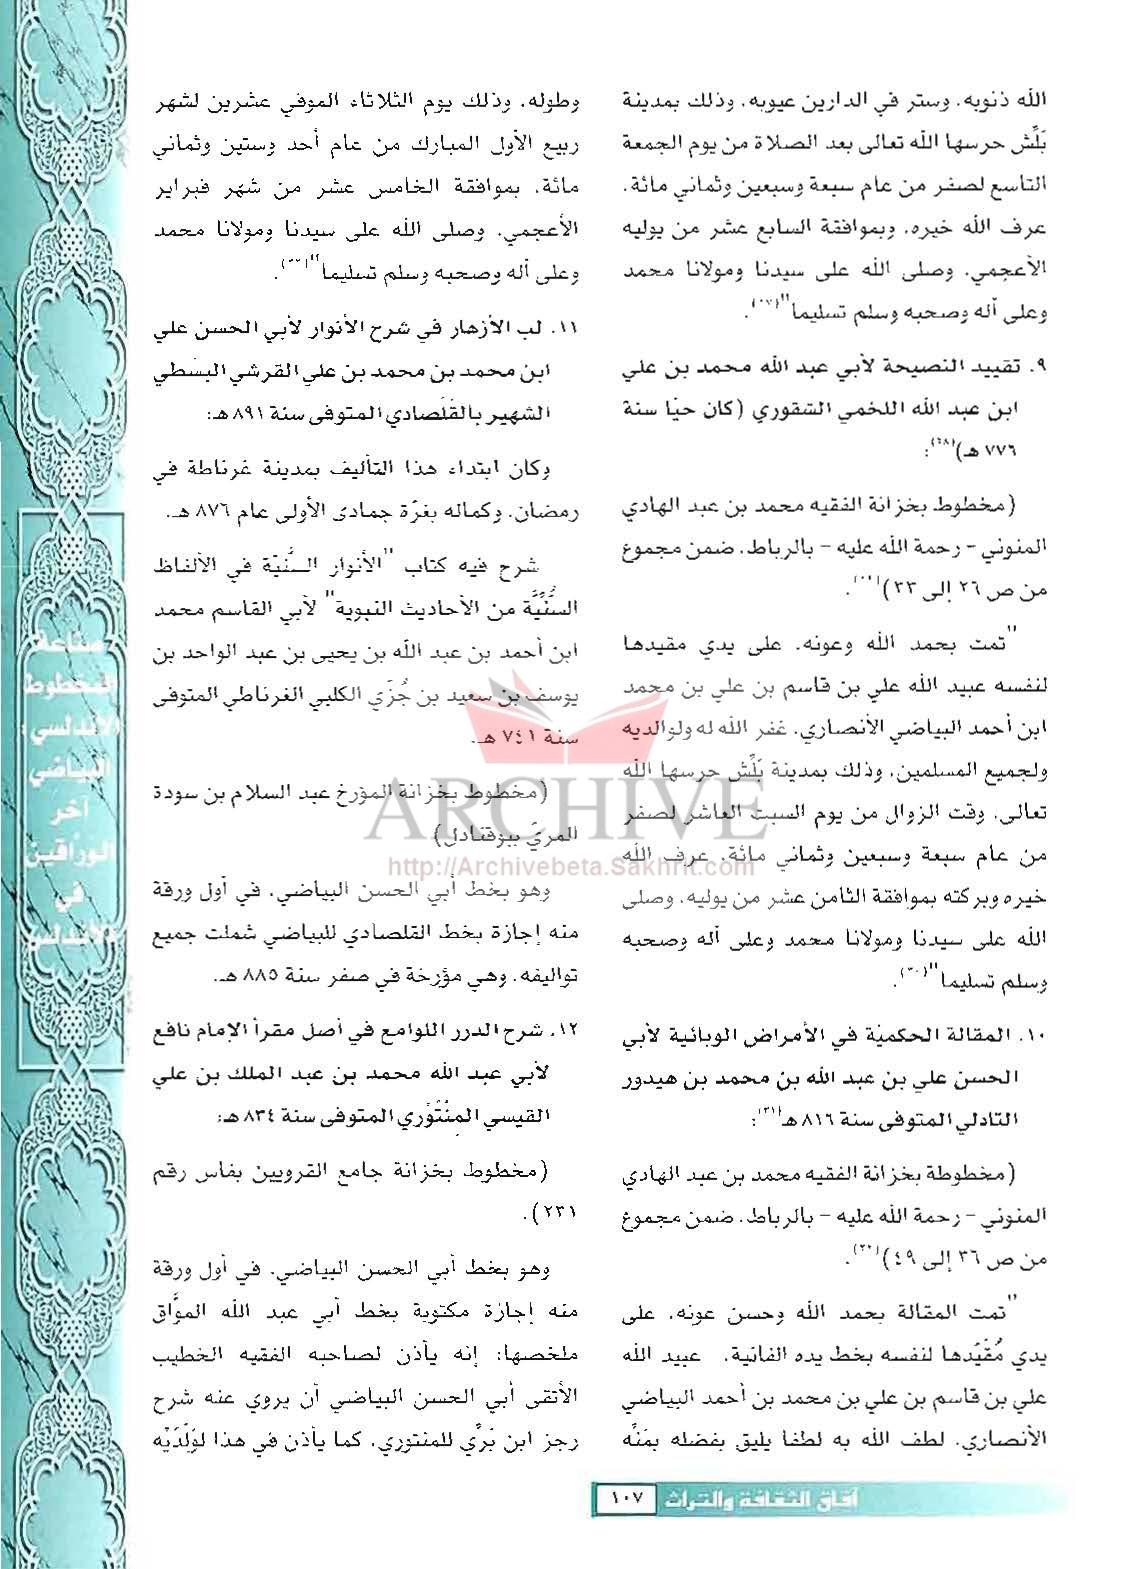 الله ذنوبه، وستر في الدارين عيوبه، وذلك بمدينة
بَلِّش حرسها الله تعالى بعد الصلاة من يوم الجمعة
التاسع لصفر من عام سبعة وسبعين وثماني مائة،
عرف الله خيره، وبموافقة السابع عشر من يوليه
الأعجمي، وصلى الله على سيدنا ومولانا محمد
وعلى آله وصحبه وسلم تسليما"
٩. تقييد النصيحة لأبي عبد الله محمد بن علي
ابن عبد الله اللخمي الشقوري (كان حيّا سنة
٧٧٦ هـ):
(مخطوط بخزانة الفقيه محمد بن عبد الهادي
المنوني - رحمة الله عليه - بالرباط، ضمن مجموع
من ص ٢٦ إلى ٣٣).
"تمت بحمد الله وعونه، على يدي مقيدها
لنفسه عبيد الله علي بن قاسم بن علي بن محمد
ابن أحمد البياضي الأنصاري، غفر الله له ولوالديه
ولجميع المسلمين، وذلك بمدينة بَلِّش حرسها الله
تعالى، وقت الزوال من يوم السبت العاشر لصفر
من عام سبعة وسبعين وثماني مائة، عرف الله
خيره وبركته بموافقة الثامن عشر من يوليه، وصلى
الله على سيدنا ومولانا محمد وعلى آله وصحبه
وسلم تسليما"(٣٠).
١٠. المقالة الحكميّة في الأمراض الوبائية لأبي
الحسن علي بن عبد الله بن محمد بن هيدور
التادلي المتوفى سنة ٨١٦ هـ(٣١):
(مخطوطة بخزانة الفقيه محمد بن عبد الهادي
المنوني - رحمة الله عليه - بالرباط، ضمن مجموع
من ص ٣٦ إلى ٤٩).
"تمت المقالة بحمد الله وحسن عونه، على
يدي مُقَيِّدها لنفسه بخط يده الفانية، عبيد الله
علي بن قاسم بن علي بن محمد بن أحمد البياضي
الأنصاري، لطف الله به لطفا يليق بفضله بمَنّه
وطوله، وذلك يوم الثلاثاء الموفي عشرين لشهر
ربيع الأول المبارك من عام أحد وستين وثماني
مائة، بموافقة الخامس عشر من شهر فبراير
الأعجمي، وصلى الله على سيدنا ومولانا محمد
وعلى آله وصحبه وسلم تسليما".
١١. لب الأزهار في شرح الأنوار لأبي الحسن علي
ابن محمد بن محمد بن علي القرشي البسْطي
الشهير بالقَلَصادي المتوفى سنة ٨٩١ هـ:
وكان ابتداء هذا التأليف بمدينة غرناطة في
رمضان، وكماله بغرّة جمادى الأولى عام ٨٧٦ هـ.
شرح فيه كتاب "الأنوار السَّنيّة في الألفاظ
السُّنِّيَّة من الأحاديث النبوية" لأبي القاسم محمد
ابن أحمد بن عبد الله بن يحيى بن عبد الواحد بن
يوسف بن سعيد بن جُزَي الكلبي الغرناطي المتوفى
سنة ٧٤١ هـ.
(مخطوط بخزانة المؤرخ عبد السلام بن سودة
المريّ ببوقنادل)
وهو بخط أبي الحسن البياضي، في أول ورقة
منه إجازة بخط القلصادي للبياضي شملت جميع
تواليفه، وهي مؤرخة في صفر سنة ٨٨٥ هـ.
١٢. شرح الدرر اللوامع في أصل مقرأ الإمام نافع
لأبي عبد الله محمد بن عبد الملك بن علي
القيسي المِنْتَوْري المتوفى سنة ٨٣٤ هـ:
(مخطوط بخزانة جامع القرويين بفاس رقم
٢٣١).
وهو بخط أبي الحسن البياضي، في أول ورقة
منه إجازة مكتوبة بخط أبي عبد الله الموَّاق
ملخصها: إنه يأذن لصاحبه الفقيه الخطيب
الأتقى أبي الحسن البياضي أن يروي عنه شرح
رجز ابن بَرِّي للمنتوري، كما يأذن في هذا لوَلَدَيْه
صناعة
المخطوط
الأندلسي:
البياضي
آخر
الوراقين
في
الأندلس
ARCHIVE
http://Archivebeta.Sakhrit.com
آفاق الثقافة والتراث ١٠٧